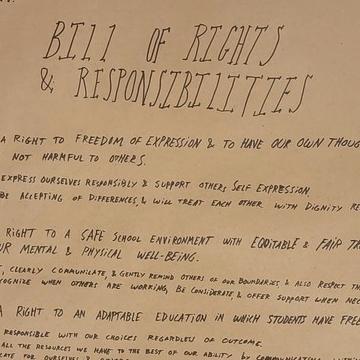 BILL OF RIGHTS
& RESPONSIBILITIES
A RIGHT TO FREEDOM OF EXPRESSION & TO HAVE OUR OWN THOUG
NOT HARMFUL TO OTHERS.
EXPRESS OURSELVES RESPONSIBLY & SUPPORT OTHERS SELF EXPRESSION
BE ACCEPTING OF DIFFERENCES, & WILL TREAT EACH OTHER WITH DIGNITY RE
RIGHT TO A SAFE SCHOOL ENVIRONMENT WITH EQUITABLE & FAIR TR
UR MENTAL & PHYSICAL WELL-BEING.
, CLEARLY COMMUNICATE, & GENTLY REMIND OTHERS OF OUR BOUNDARIES & ALSO RESPECT TH
COGNIZE WHEN OTHERS ARE WORKING, BE CONSIDERATE, & OFFER SUPPORT WHEN NEC
A RIGHT TO AN ADAPTABLE EDUCATION IN WHICH STUDENTS HAVE FREE
RESPONSIBLE WITH OUR CHOICES REGARDLESS OF OUTCOME.
ALL THE RESOURCES WE HAVE TO THE BEST OF OUR ABILITY by COMMUNICATING
CATE FOR OURSELVES &